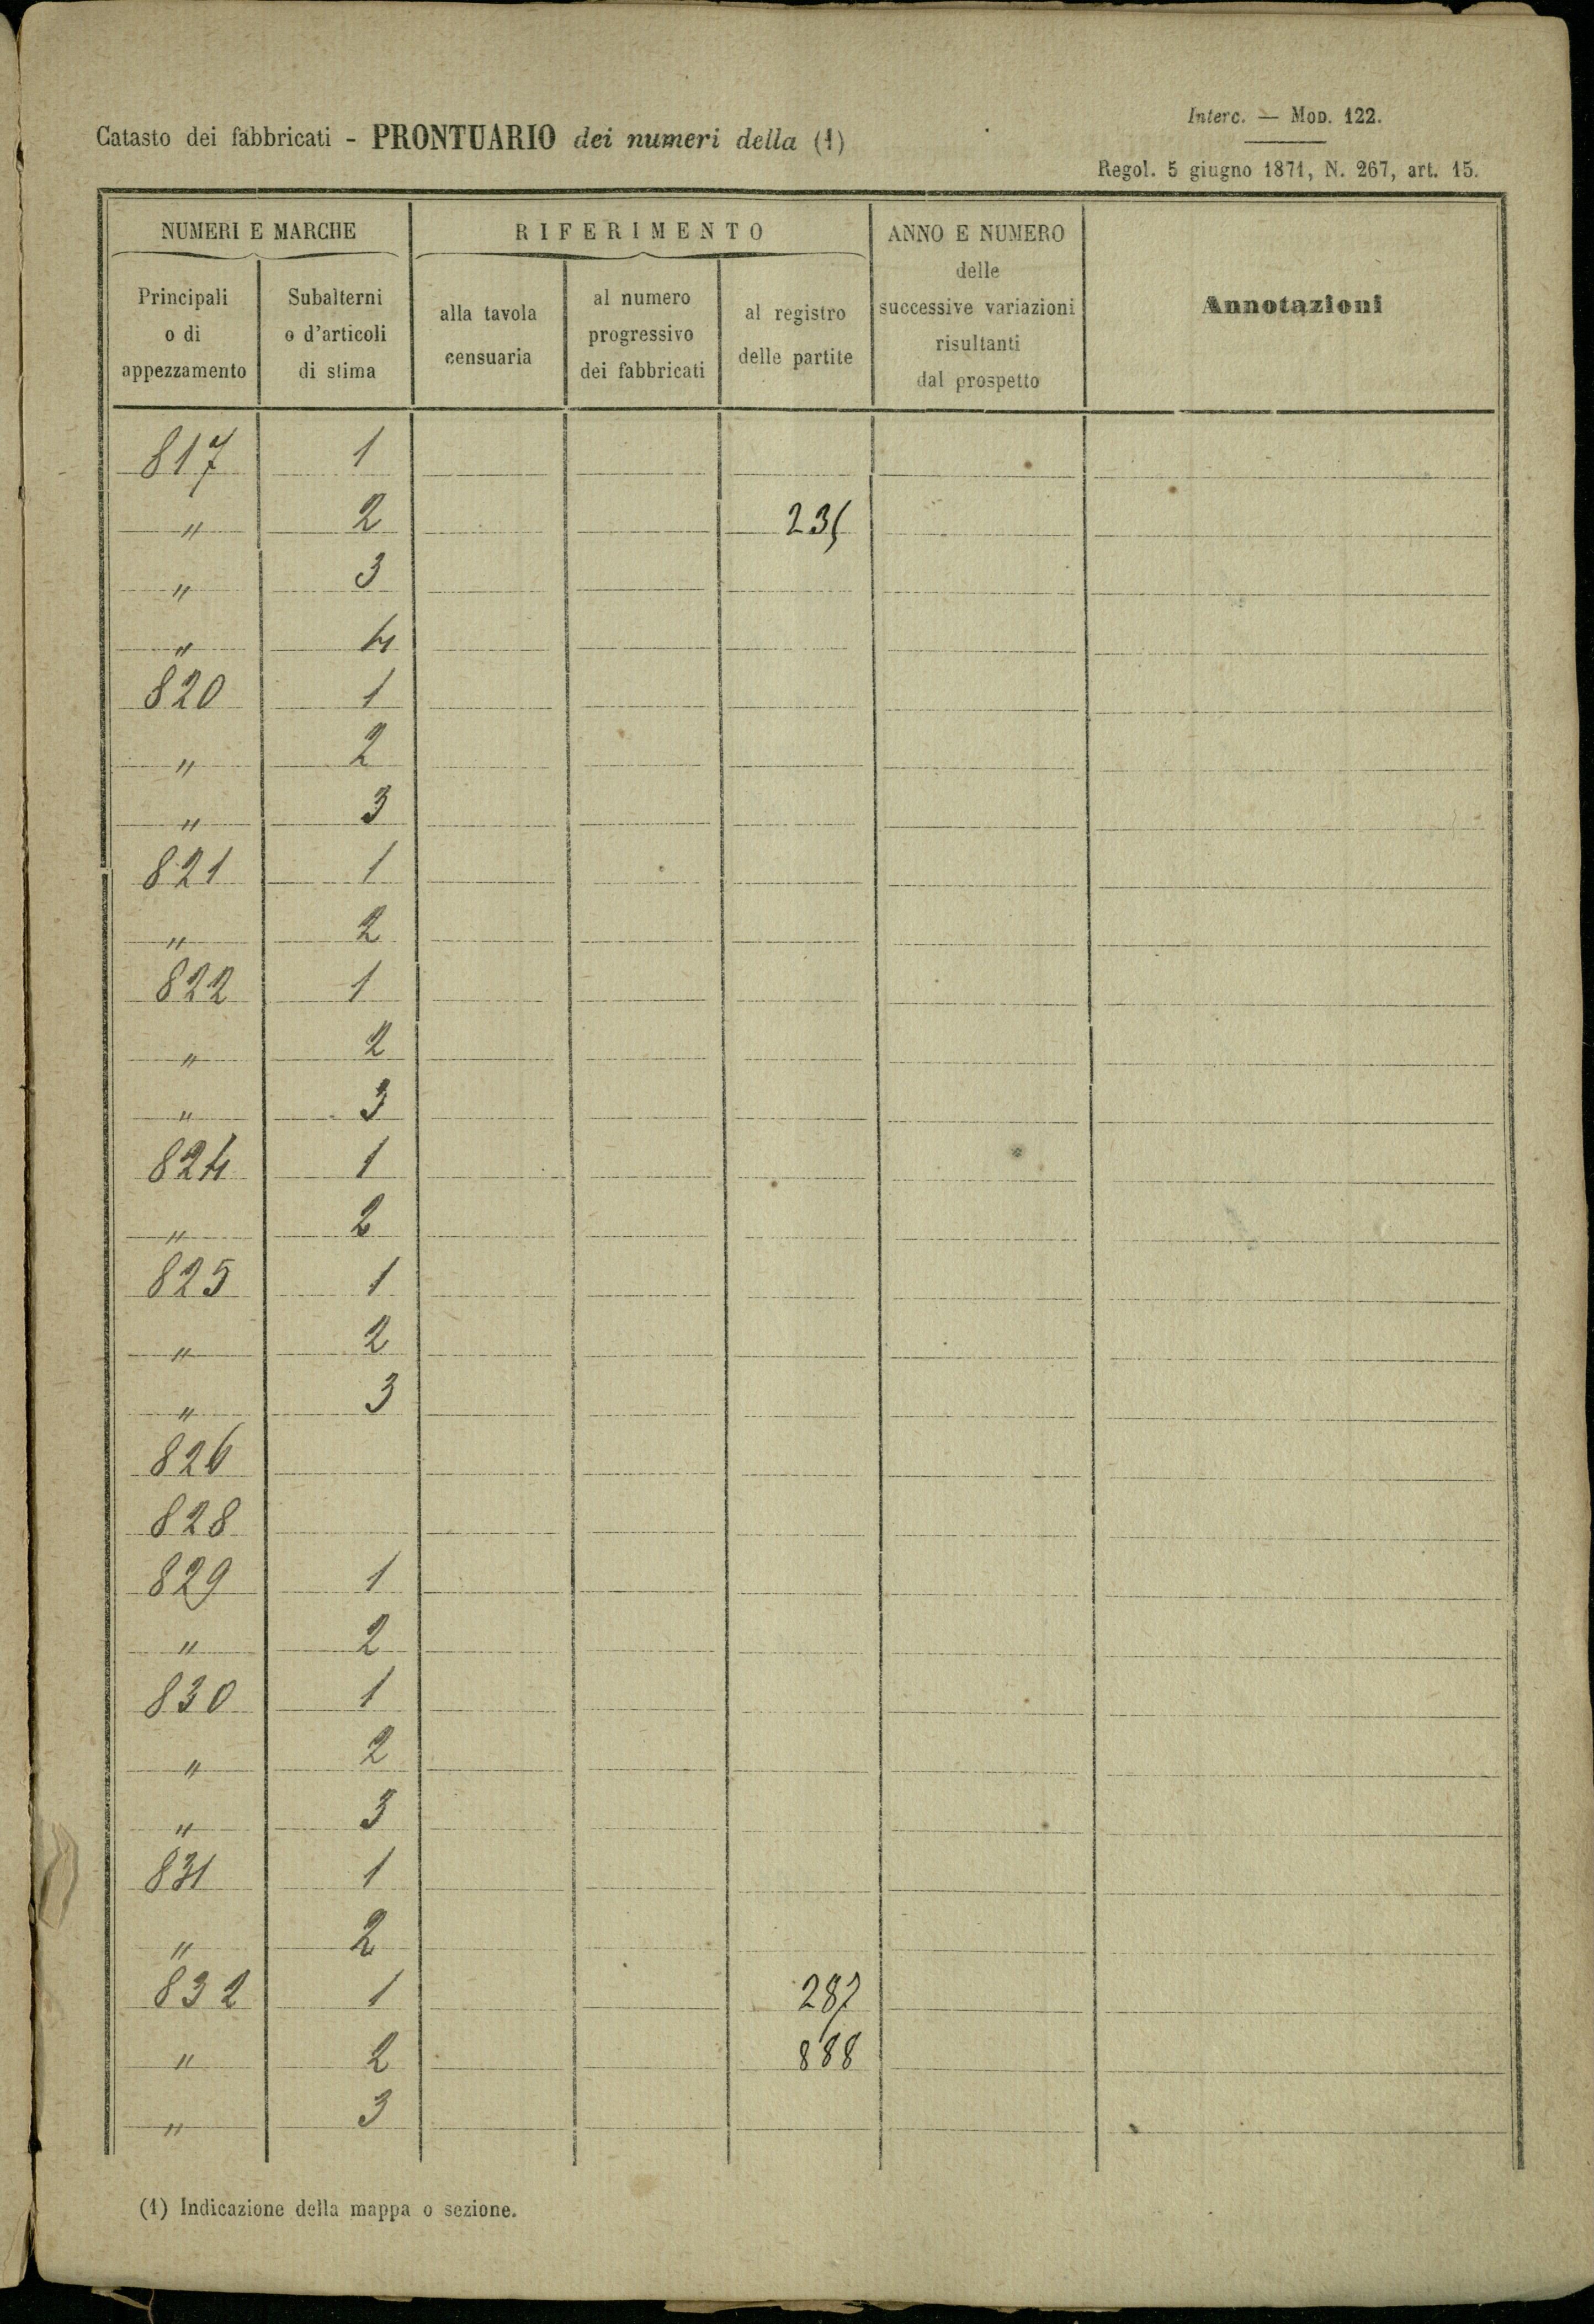 Interc. — Mod. 122.
Catasto dei fabbricati - PRONTUARIO dei numeri della (1)
Regol. 5 giugno 1871, N. 267, art. 15.
NUMERI E MARCHE
RIFERIMENTO
ANNO E NUMERO delle successive variazioni risultanti dal prospetto
Annotazioni
Principali o di appezzamento
Subalterni o d'articoli di stima
alla tavola censuaria
al numero progressivo dei fabbricati
al registro delle partite
817 1
" 2 235
" 3
" 4
820 1
" 2
" 3
821 1
" 2
822 1
" 2
" 3
824 1
" 2
825 1
" 2
" 3
826
828
829 1
" 2
830 1
" 2
" 3
831 1
" 2
832 1 287
" 2 888
" 3
(1) Indicazione della mappa o sezione.